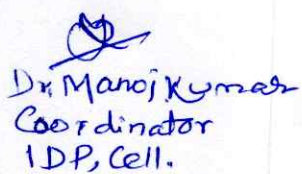 Dr. Manoj Kumar
Coordinator
IDP, Cell.